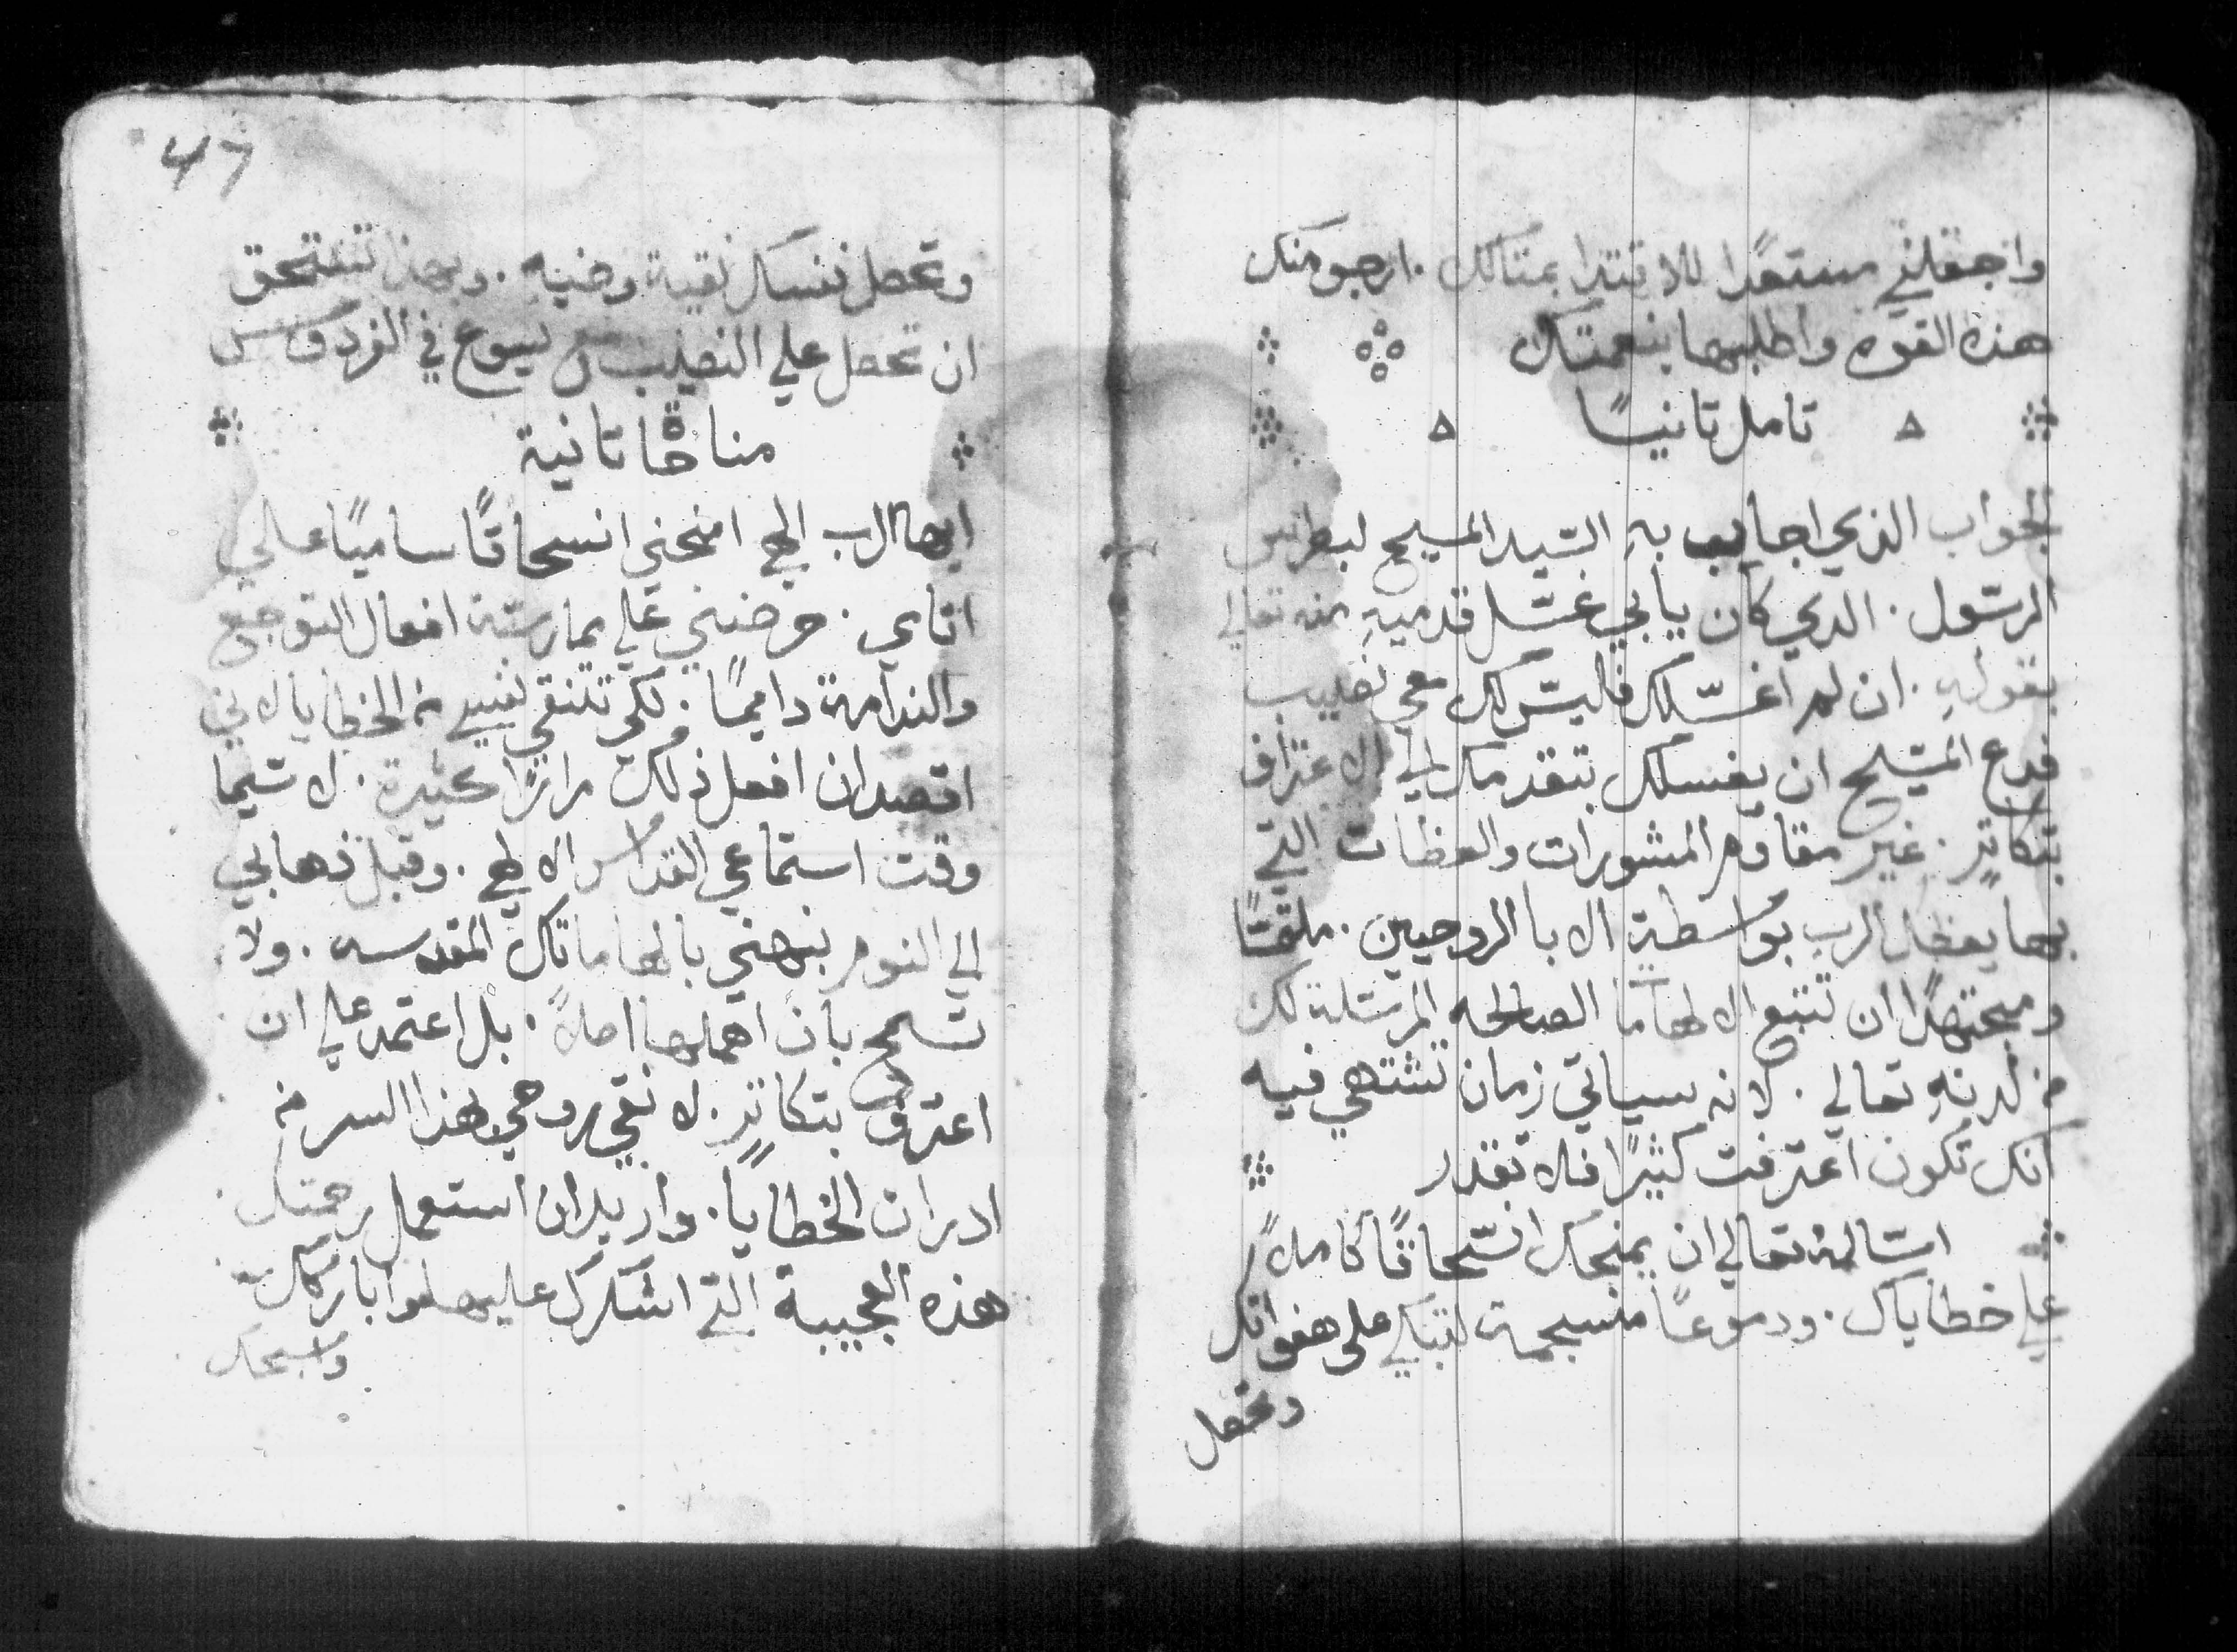 واجعلني مستعدًا للاقتدا بمثالك . ارجو منك
هذه القوه واطلبها بنعمتك
تامل ثانيًا
الجواب الذي اجاب به السّيد المسيح لبطرس
الرسّول . الدي كان يابي غسّل قدميهِ منه تعالي
بقولهِ . ان لم اغسّلك فاليسّ لك معي نصيب
فدع المسّيح ان يغسلك بتقدمك الي الاعتراف
بتكاثرٍ . غير مقاوم المشورات والعظات التي
بها يعظك الرب بواسطة الابا الروحيين . ملتقتًا
ومجتهدًا ان تتبع الالهاما الصالحه المرسّلة لك
من لدنهِ تعالي . لانه سياتي زمان تشتهي فيه
انك تكون اعترفت كثيرًا فلا تقدر
اسّالهُ تعالي ان يمنحك انسّحاقًا كاملاً
علي خطاياك . ودموعًا منسجمة لتبكي على هفواتك
وتجعل
47
وتجعل نفسك نقية وضيه . وبهذا تستحق
ان تحصل علي النصيب مع يسوع في الفردوس
مناجاة ثانية
ايها الرب الهي امنحني انسحاقًا ساميًا علي
اثامي . حرضني علي ممارسّة افعال التوجع
والندامة داميًا . لكي تتنقي نفسي من الخطايا لاني
اقصد ان افعل ذلك مرارًا كثيرة . لا سّيما
وقت استماعي القداس الالهي . وقبل ذهابي
الي النوم نبهني بالهاماتك المقدسه . ولا
تسمح بان اهملها اصلاً . بل اعتمد علي ان
اعترف بتكاثرٍ . لانقي روحي بهذا السر من
ادران الخطايا . واريد ان استعمل رحمتك
هذه العجيبة التي اشكرك عليها واباركك
واسبحك